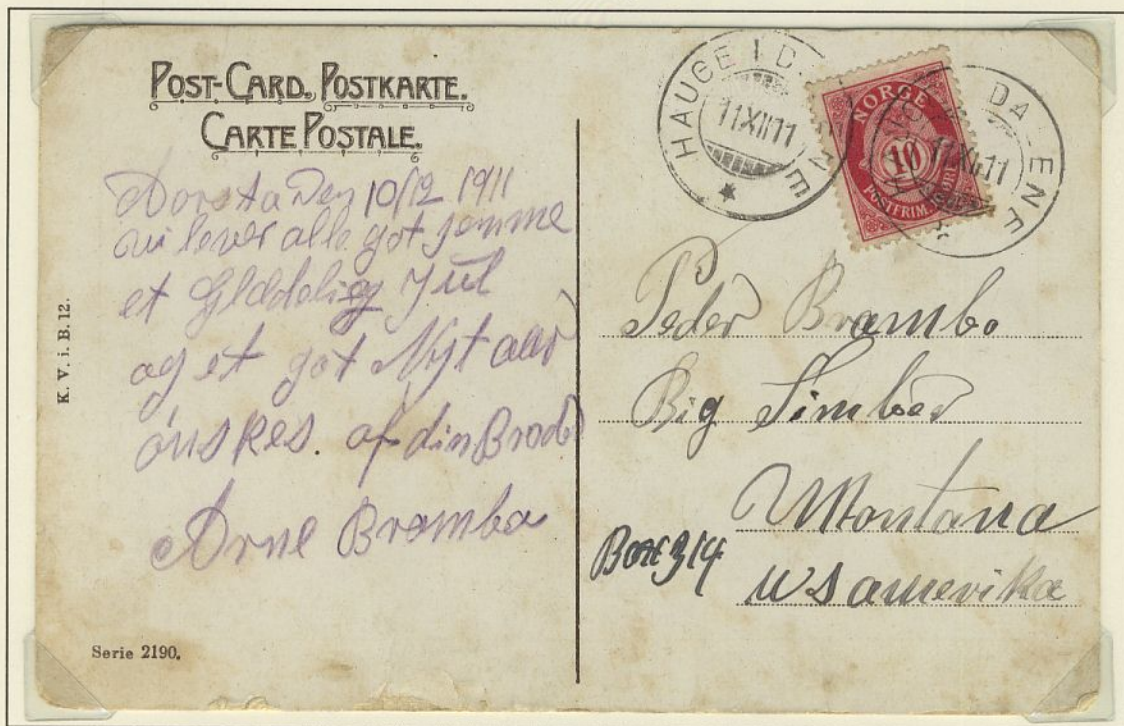 POST-CARD. POSTKARTE.
CARTE POSTALE.
Den 10/12 1911
vi lever alle got samme
et Glædelig Jul
og et got Nyt aar
önskes. af din Broder
Arne Brambo
K. V. i. B. 12.
Serie 2190.
HAUGE I D. NE
11 XII 11
NORGE
10
POSTFRIM.
DALENE
11 XII 11
Peder Brambo
Big Timber
Montana
Box 314
U S amerika